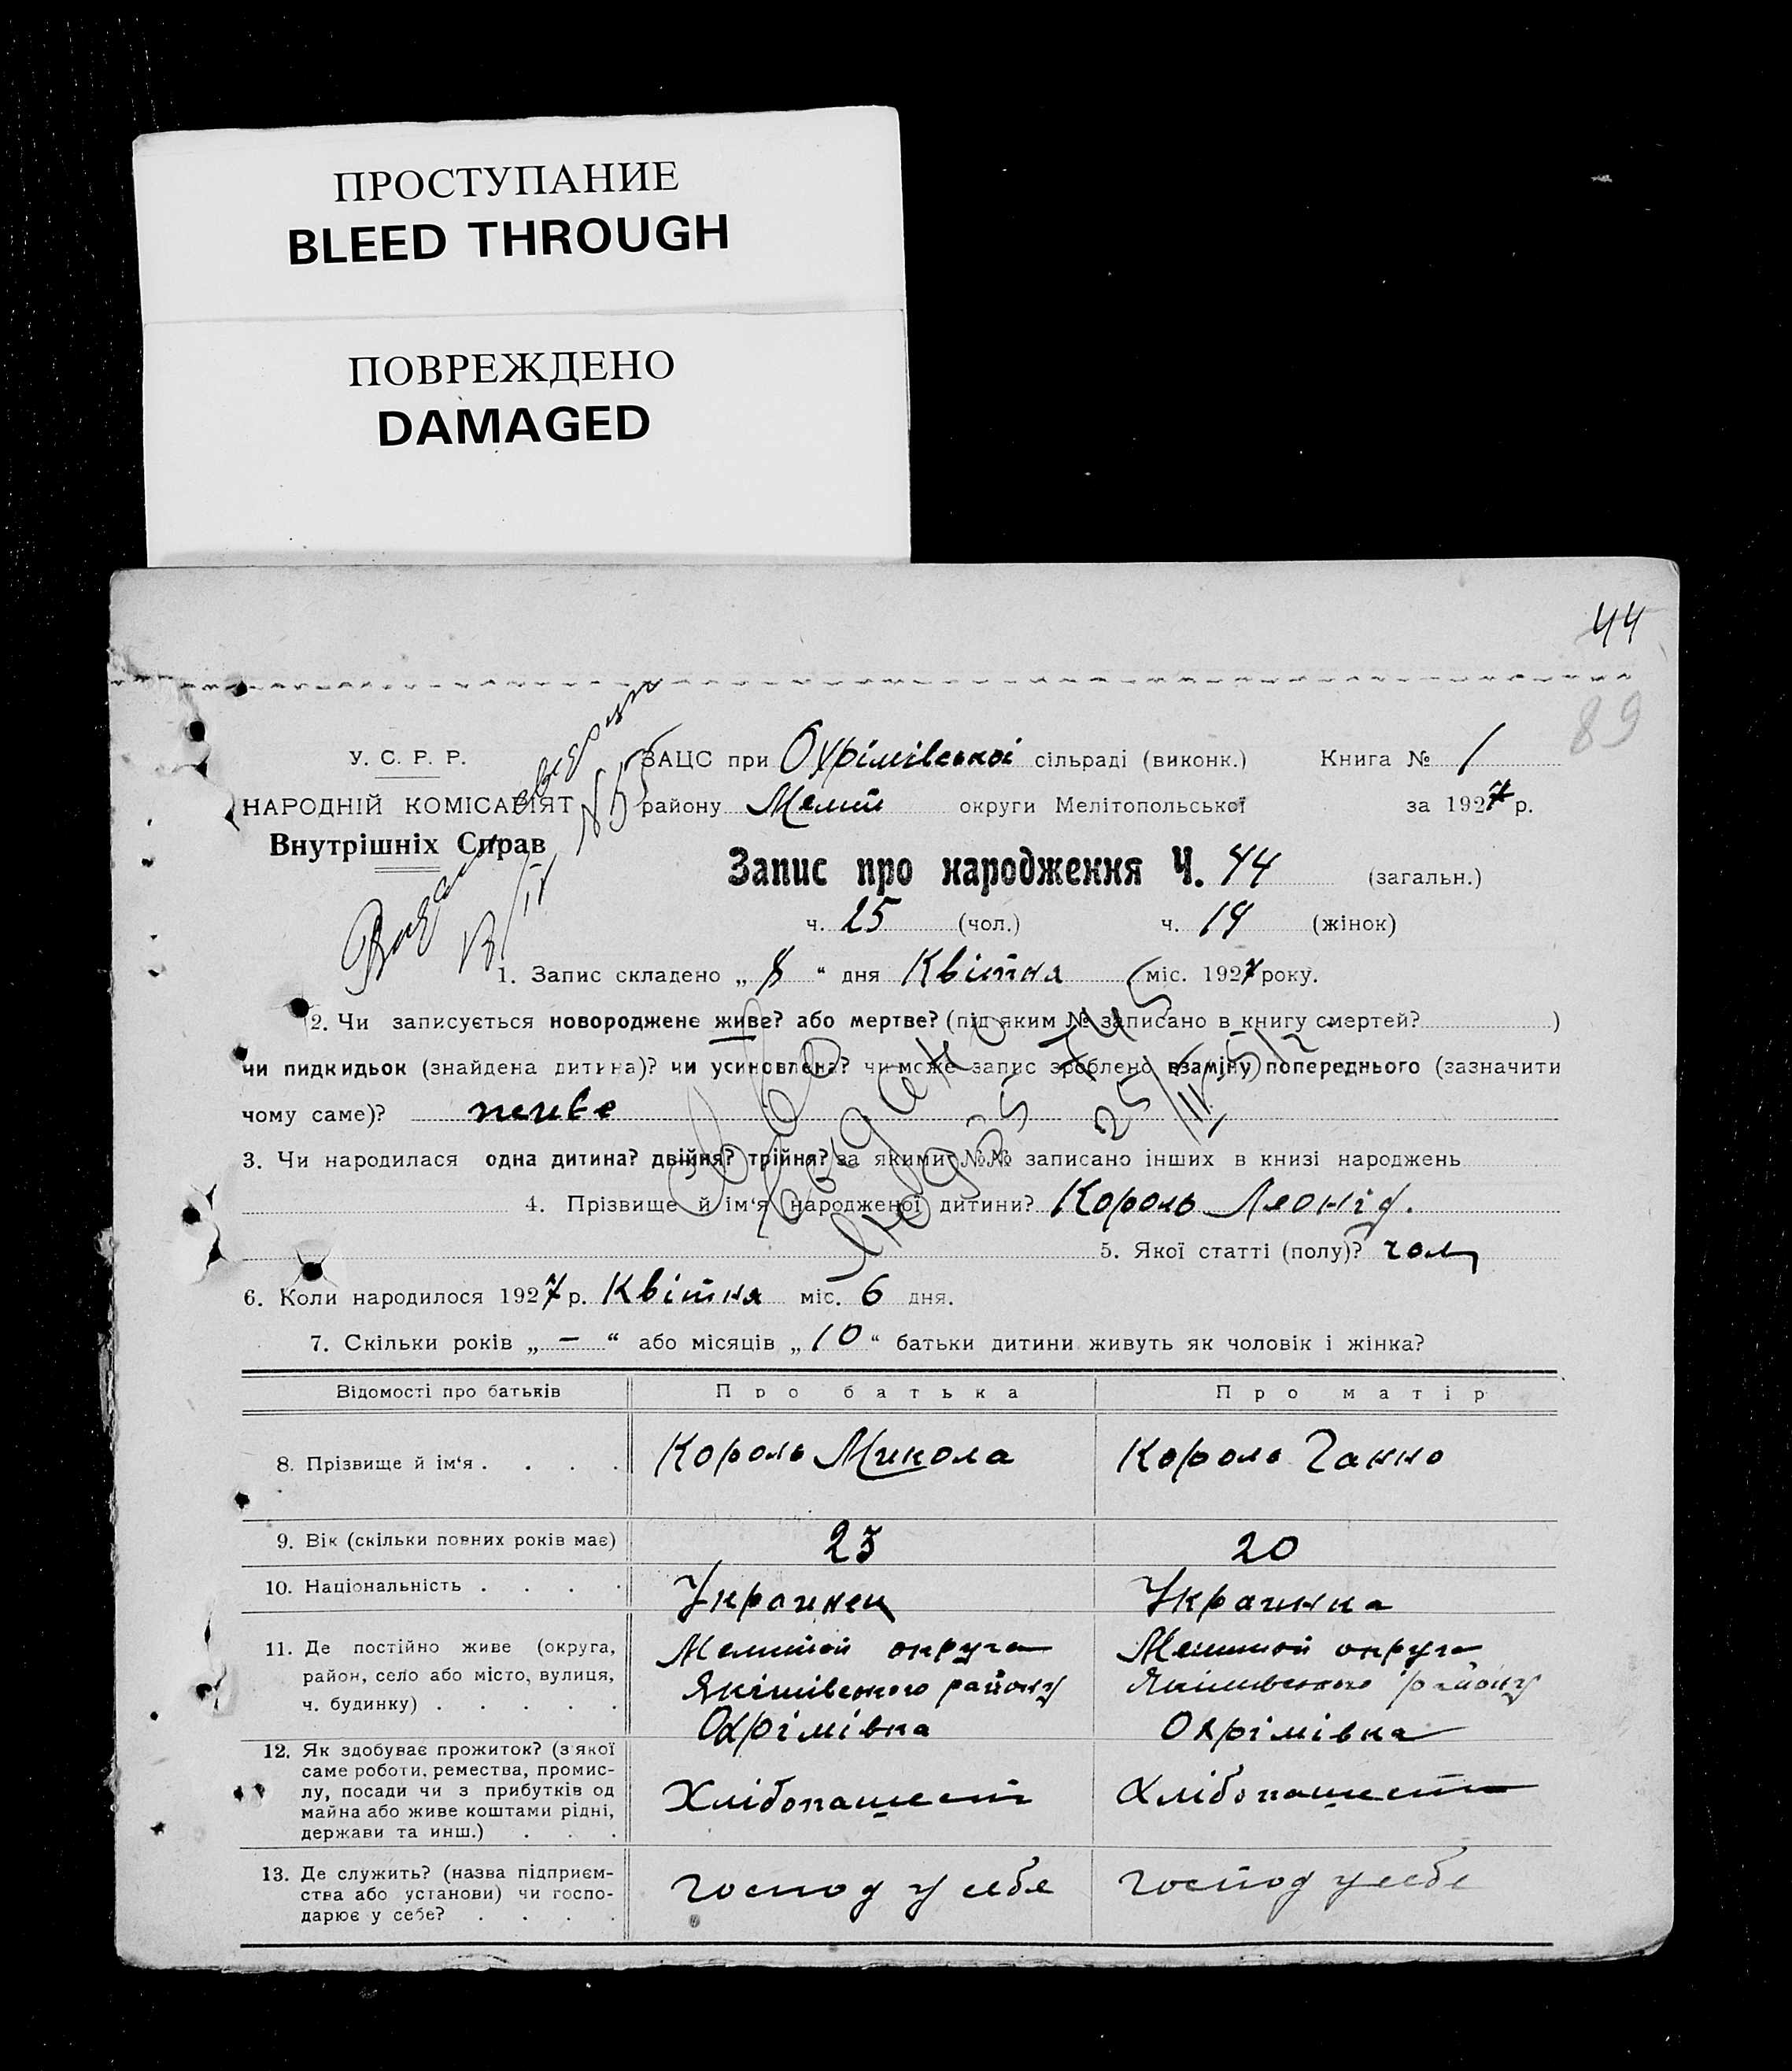 ПРОСТУПАНИЕ
BLEED THROUGH
ПОВРЕЖДЕНО
DAMAGED
44
89
У. С. Р. Р.
НАРОДНІЙ КОМІСАРІЯТ
Внутрішніх Справ
ЗАЦС при Охрімівської сільраді (виконк.) Книга № 1
району Меліт округи Мелітопольської за 1927 р.
Запис про народження Ч. 44 (загальн.)
ч. 25 (чол.) ч. 19 (жінок)
1. Запис складено „ 8 “ дня Квітня міс. 1927 року.
2. Чи записується новороджене живе? або мертве? (під яким № записано в книгу смертей? )
чи пидкидьок (знайдена дитина)? чи усиновлена? чи може запис зроблено взаміну попереднього (зазначити
чому саме)? живе
3. Чи народилася одна дитина? двійня? трійня? за якими №№ записано інших в книзі народжень
4. Прізвище й ім‘я народженої дитини? Король Леонід.
5. Якої статті (полу)? чол
6. Коли народилося 1927 р. Квітня міс. 6 дня.
7. Скільки років „ — “ або місяців „ 10 “ батьки дитини живуть як чоловік і жінка?
Відомості про батьків Про батька Про матір
8. Прізвище й ім‘я . . . . Король Микола Король Ганно
9. Вік (скільки повних років має) 23 20
10. Національність . . . . Украинец Украинка
11. Де постійно живе (округа, Мелитой округа Мелитой округа
район, село або місто, вулиця, Якімівського району Якимивського району
ч. будинку) . . . . . Охрімівка Охрімівка
12. Як здобуває прожиток? (з якої
саме роботи, ремества, промис-
лу, посади чи з прибутків од Хлібопашест Хлібопашест
майна або живе коштами рідні,
держави та инш.) . . .
13. Де служить? (назва підприєм-
ства або установи) чи госпо- господ у себе господ у себе
дарює у себе? . . . .